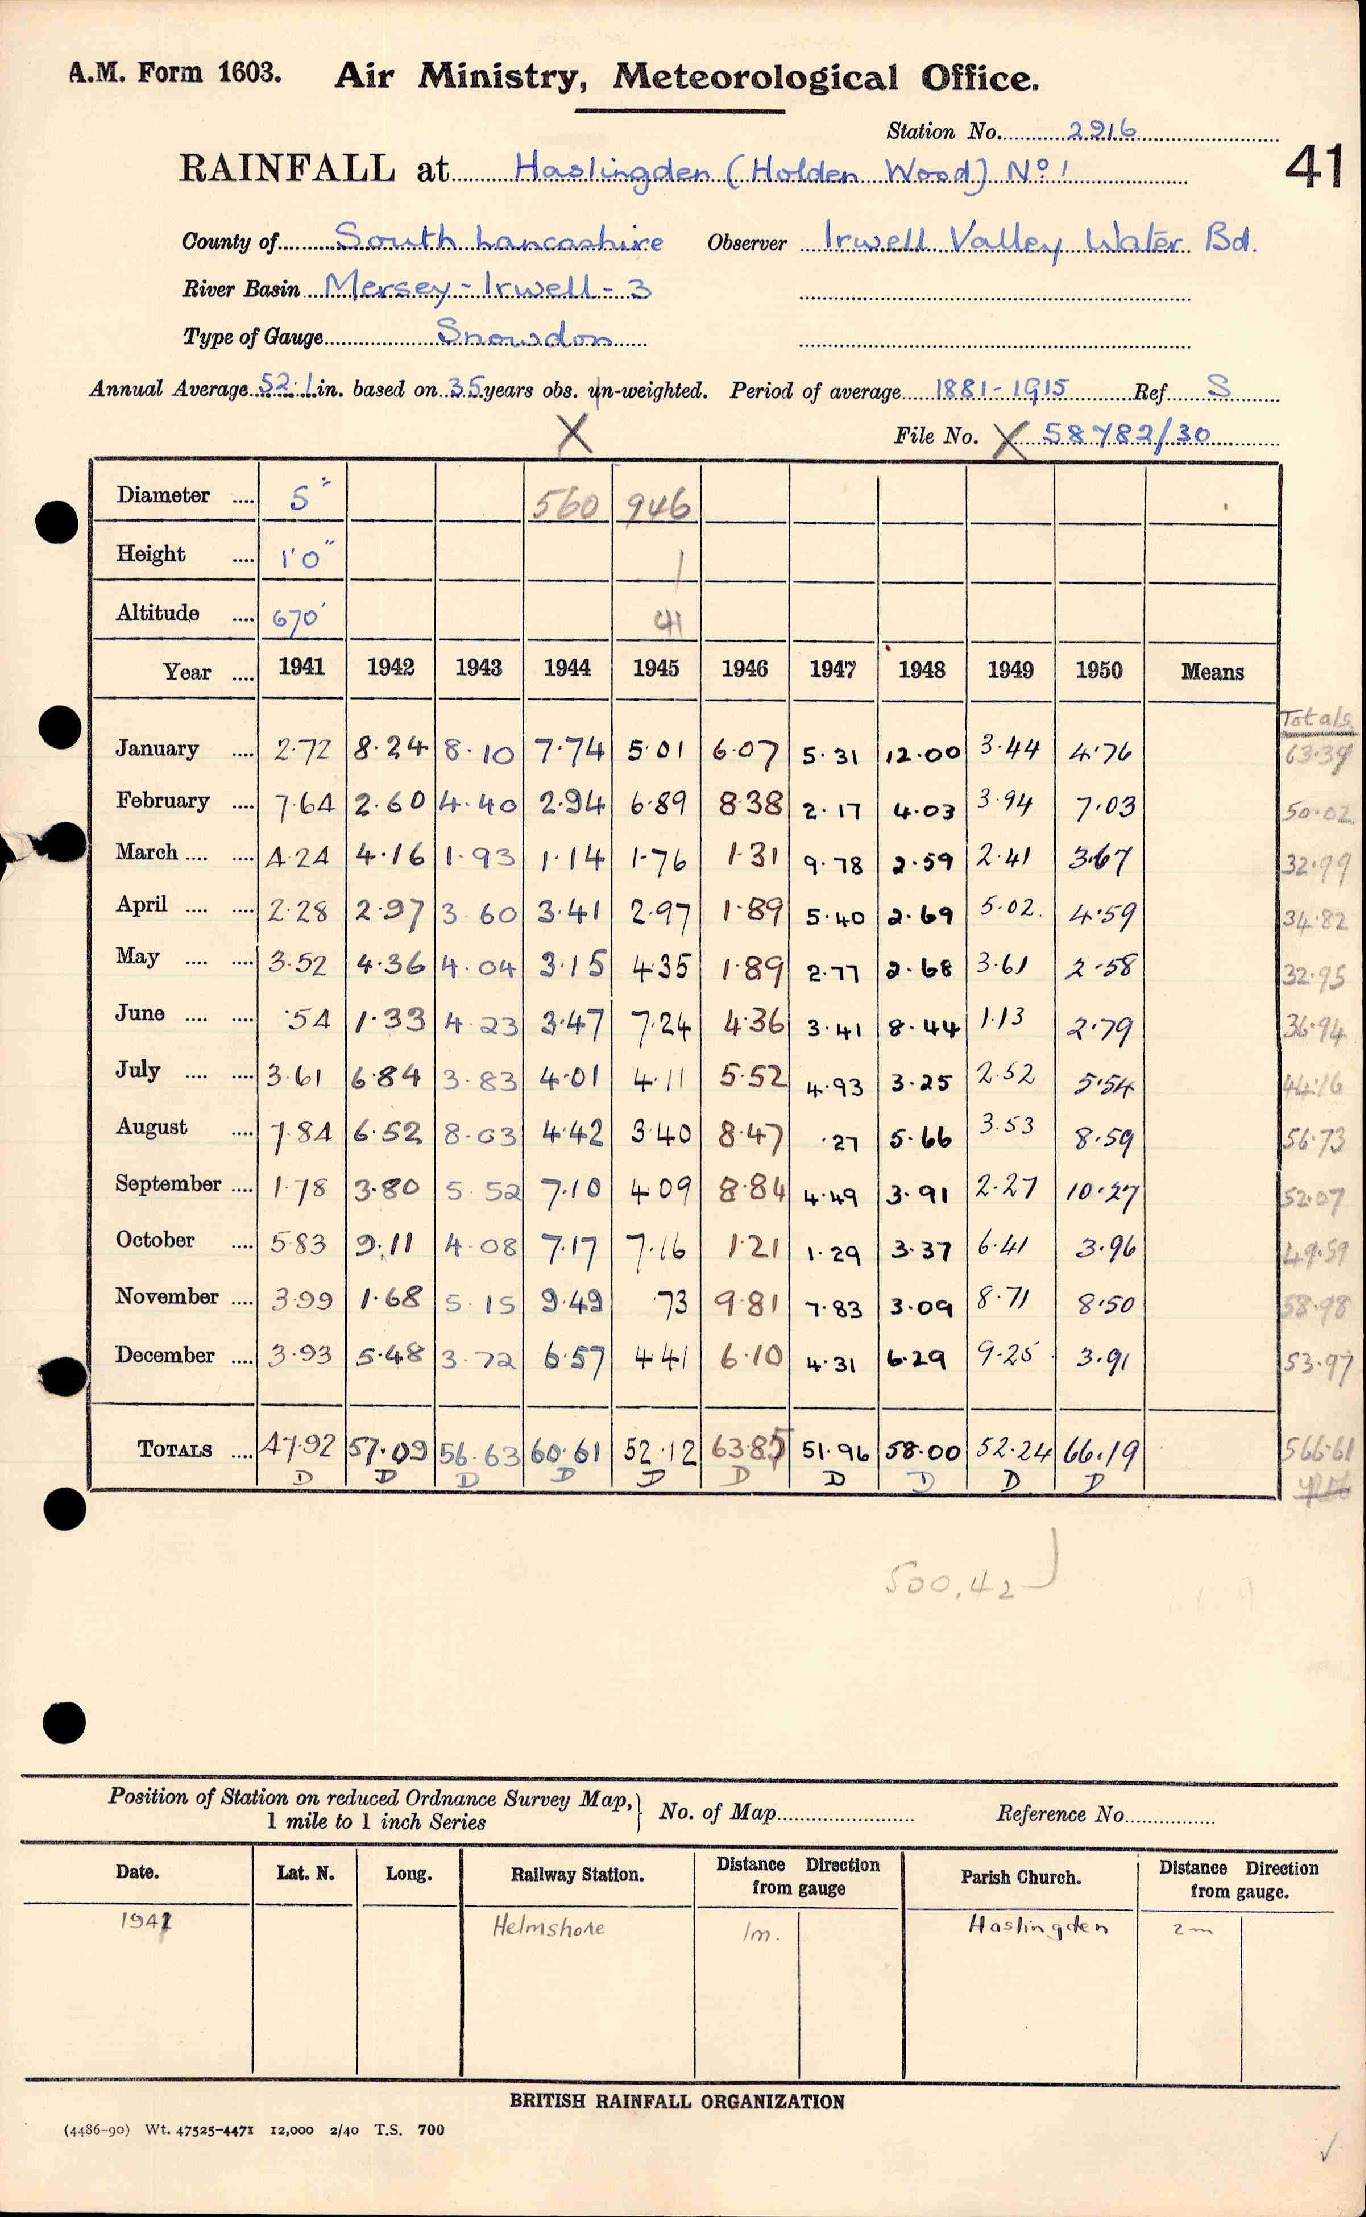 A.M. Form 1603. Air Ministry, Meteorological Office.
Station No. 2916
RAINFALL at Haslingden (Holden Wood) No 1
41
County of South Lancashire Observer Irwell Valley Water Bd.
River Basin Mersey - Irwell - 3
Type of Gauge Snowdon
Annual Average 52.1 in. based on 35 years obs. un-weighted. Period of average 1881-1915 Ref S
X File No. X 58782/30
Diameter .... 5" 560 946
Height .... 1'0" 1
Altitude .... 670' 41
Year .... 1941 1942 1943 1944 1945 1946 1947 1948 1949 1950 Means
Totals
January .... 2.72 8.24 8.10 7.74 5.01 6.07 5.31 12.00 3.44 4.76 63.39
February .... 7.64 2.60 4.40 2.94 6.89 8.38 2.17 4.03 3.94 7.03 50.02
March .... .... 4.24 4.16 1.93 1.14 1.76 1.31 9.78 2.59 2.41 3.67 32.99
April .... .... 2.28 2.97 3.60 3.41 2.97 1.89 5.40 2.69 5.02 4.59 34.82
May .... .... 3.52 4.36 4.04 3.15 4.35 1.89 2.77 2.68 3.61 2.58 32.95
June .... .... .54 1.33 4.23 3.47 7.24 4.36 3.41 8.44 1.13 2.79 36.94
July .... .... 3.61 6.84 3.83 4.01 4.11 5.52 4.93 3.25 2.52 5.54 44.16
August .... 7.84 6.52 8.03 4.42 3.40 8.47 .27 5.66 3.53 8.59 56.73
September .... 1.78 3.80 5.52 7.10 4.09 8.84 4.49 3.91 2.27 10.27 52.07
October .... 5.83 9.11 4.08 7.17 7.16 1.21 1.29 3.37 6.41 3.96 49.59
November .... 3.99 1.68 5.15 9.49 .73 9.81 7.83 3.09 8.71 8.50 58.98
December .... 3.93 5.48 3.72 6.57 4.41 6.10 4.31 6.29 9.25 3.91 53.97
TOTALS .... 47.92 57.09 56.63 60.61 52.12 63.85 51.96 58.00 52.24 66.19 566.61
D D D D D D D D D D
500.42
Position of Station on reduced Ordnance Survey Map,
1 mile to 1 inch Series
No. of Map Reference No.
Date. Lat. N. Long. Railway Station. Distance Direction from gauge Parish Church. Distance Direction from gauge.
1941 Helmshore 1m. Haslingden 2m
BRITISH RAINFALL ORGANIZATION
(4486-90) Wt. 47525-4471 12,000 2/40 T.S. 700